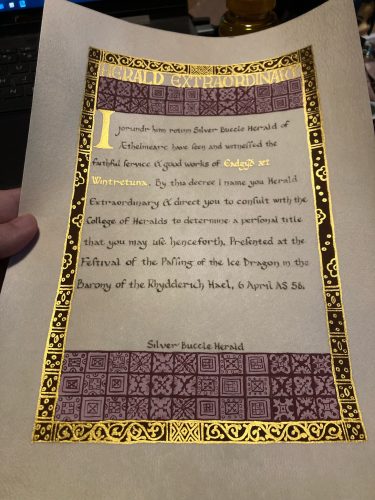 HERALD EXTRAORDINARY
I jorundr hinn rotinn Silver Buccle Herald of
Æthelmearc have seen and witnessed the
faithful service & good works of Eadgyð æt
Wintretuna. By this decree I name you Herald
Extraordinary & direct you to consult with the
College of Heralds to determine a personal title
that you may use henceforth. Presented at the
Festival of the Passing of the Ice Dragon in the
Barony of the Rhydderich Hael, 6 April AS 58.
Silver Buccle Herald